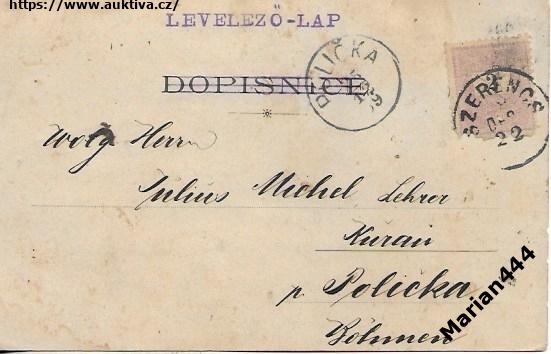 https://www.auktiva.cz/
LEVELEZŐ-LAP
POLIČKA
DOPISNICE
2
SZERENCS
22
Herrn
Julius Michel Lehrer
Kurau
p. Polička
Böhmen
Marian444